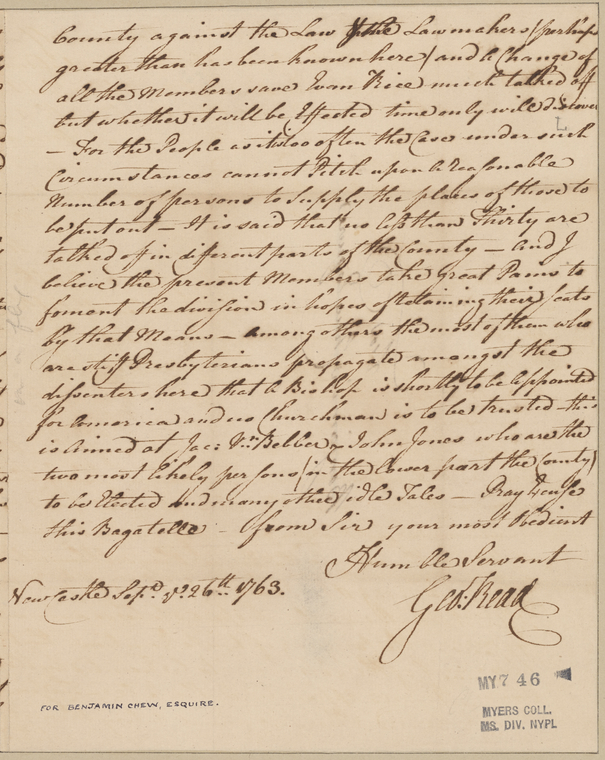 County against the Law & the Lawmakers (perhaps
greater than has been known here) and a Change of
all the Members save Evan Rice much talked off
but whether it will be Effected time only will discover
– For the People as it is too often the Case under such
Circumstances cannot Pitch upon a Reasonable
Number of persons to Supply the places of those to
be put out – It is said that no less than Thirty are
talked of in different parts of the County – and I
believe the present Members take great Pains to
foment the division in hopes of retaining their seats
by that Means – amongst others the most of them who
are stiff Presbyterians propagate amongst the
dissenters here that a Bishop is shortly to be appointed
for America and no Churchman is to be trusted this
is aimed at Jac: Vn Bebber & John Jones who are the
two most likely persons (in the lower part the County)
to be Elected and many other idle Tales – Pray Excuse
this Bagatelle – from Sir your most Obedient
Humble Servant
New Castle Sepr. ye. 26th. 1763.
Geo: Read
FOR BENJAMIN CHEW, ESQUIRE.
MY 746
MYERS COLL.
MS. DIV. NYPL